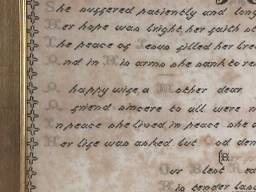 She suffered patiently and long
Her hope was bright, her faith st
The peace of Jesus filled her bre
And in His arms she sank to re
A happy wife, a Mother dear
A friend sincere to all were n
In peace she lived in peace she d
Her life was asked but God den
Our Blest Red
His tender las